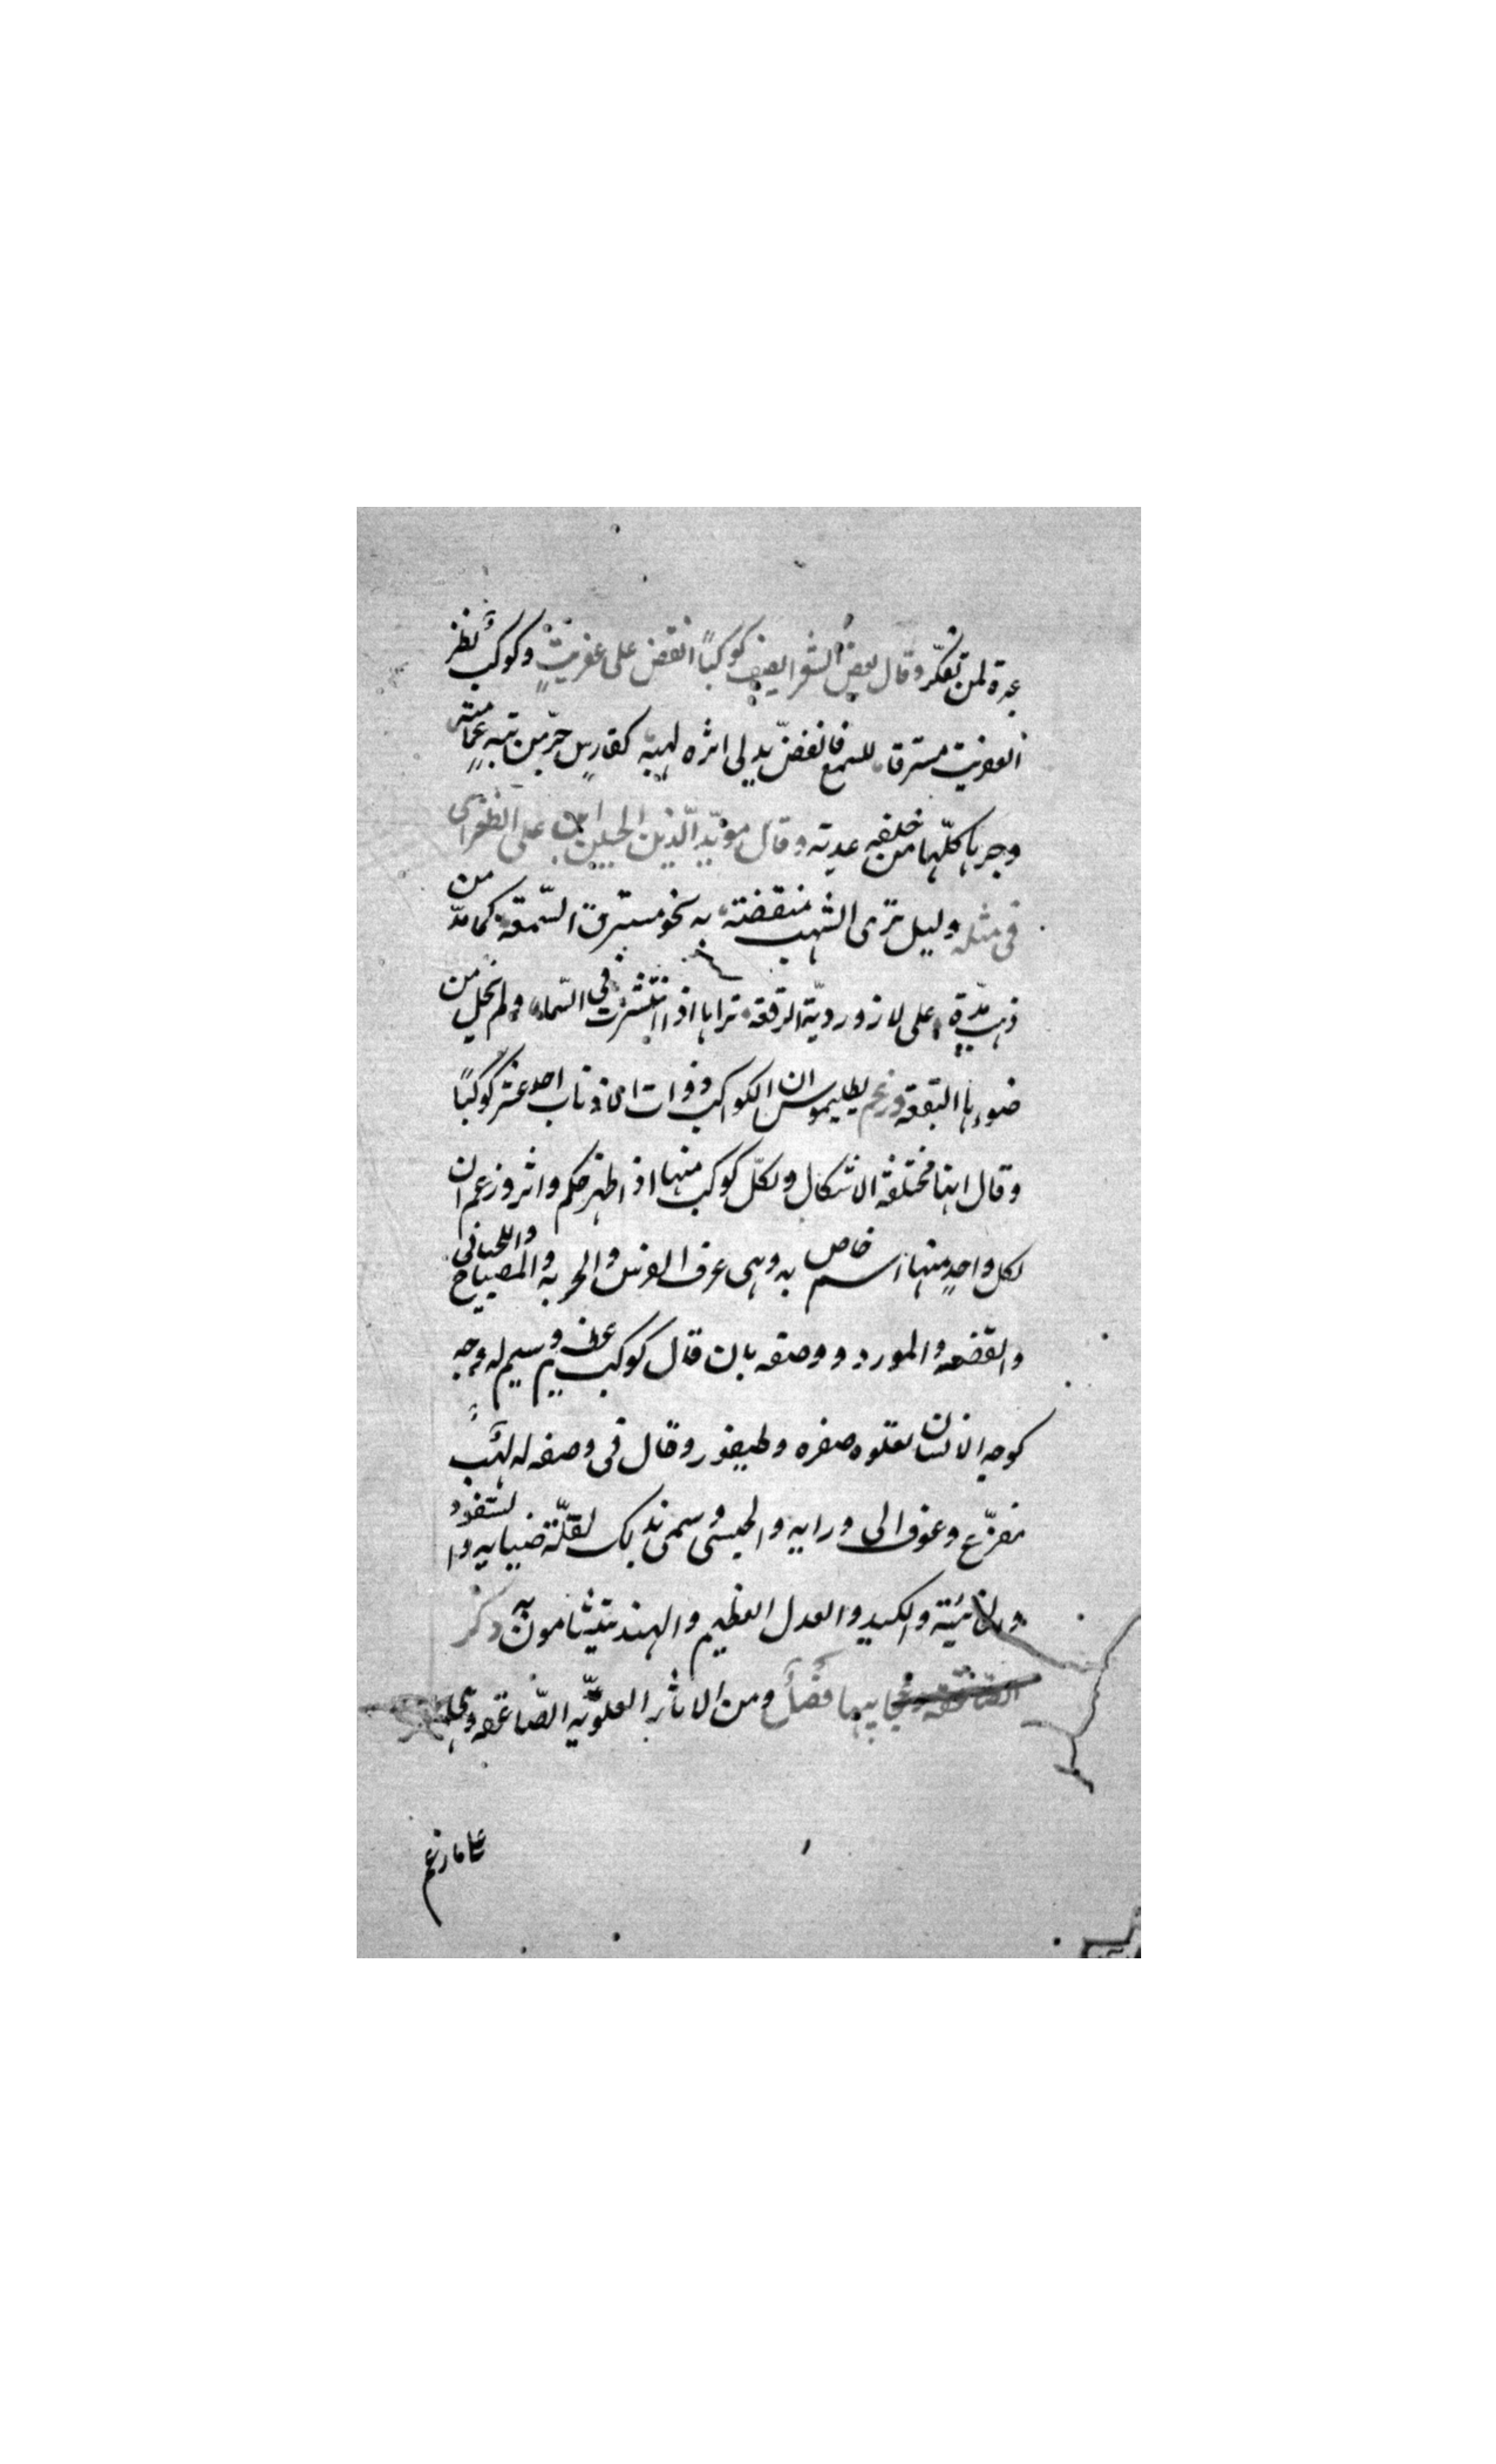 عبرة لمن تفكّر وقال بعض الشعرا يصف كوكبًا انقض على عفريت وكوكب نظر
العفريت مسترقا للسمع فانقضّ يدلى اثره لهبه كفارس حرّ من تيه عمامته
وجرها كلّها من خلفه عدبته وقال مويّد الّدين الحسين ابن على الطغرائى
فى مثله وليل ترى الشهب منقضته به نحو مسترق السّمعه كما مدّ من
ذهب مدّة على لازورديّة الرقعه تراها اذا انتشرت فى السّماء ولم تخل من
ضوءها البقعه وزعم بطليموس ان الكواكب ذوات الاذناب احد عشر كوكبًا
وقال انها مختلفة الاشكال ولكلّ كوكب منها اذا ظهر حكم واثر وزعم ان
لكل واحدٍ منها اسم خاص به وهى عرف الفرس والحربه والمصباح واللحيانى
والقضعه والمورد و ووصفه بان قال كوكب عظيم وسيم له وجه
كوجه الانسان تعلوه صفره وطيفور وقال فى وصفه له لهب
مفزّع وعوف الى ورايه والحبشى وسمى بذلك لقلّة ضيايه والسفود
والكيد والعدل العظيم والهند يتشامون به ذكر
الصّاعقه وعجايبها فصل ومن الاثار العلويّه الصّاعقه وهى
على ما زعم